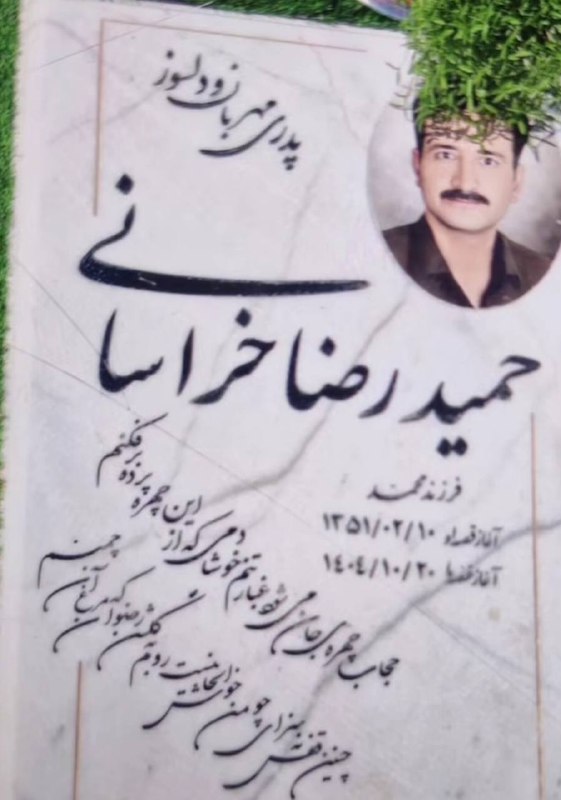 پدری مهربان و دلسوز
حمیدرضا خراسانی
فرزند محمد
آغاز قصه ۱۳۵۱/۰۲/۱۰
آغاز قصه ۱۴۰۴/۱۰/۲۰
حجاب چهره جان می شود غبار تنم
خوشا دمی که از این چهره پرده برفکنم
چنین قفس نه سزای چو من خوش الحانیست
روم به گلشن رضوان که مرغ آن چمنم